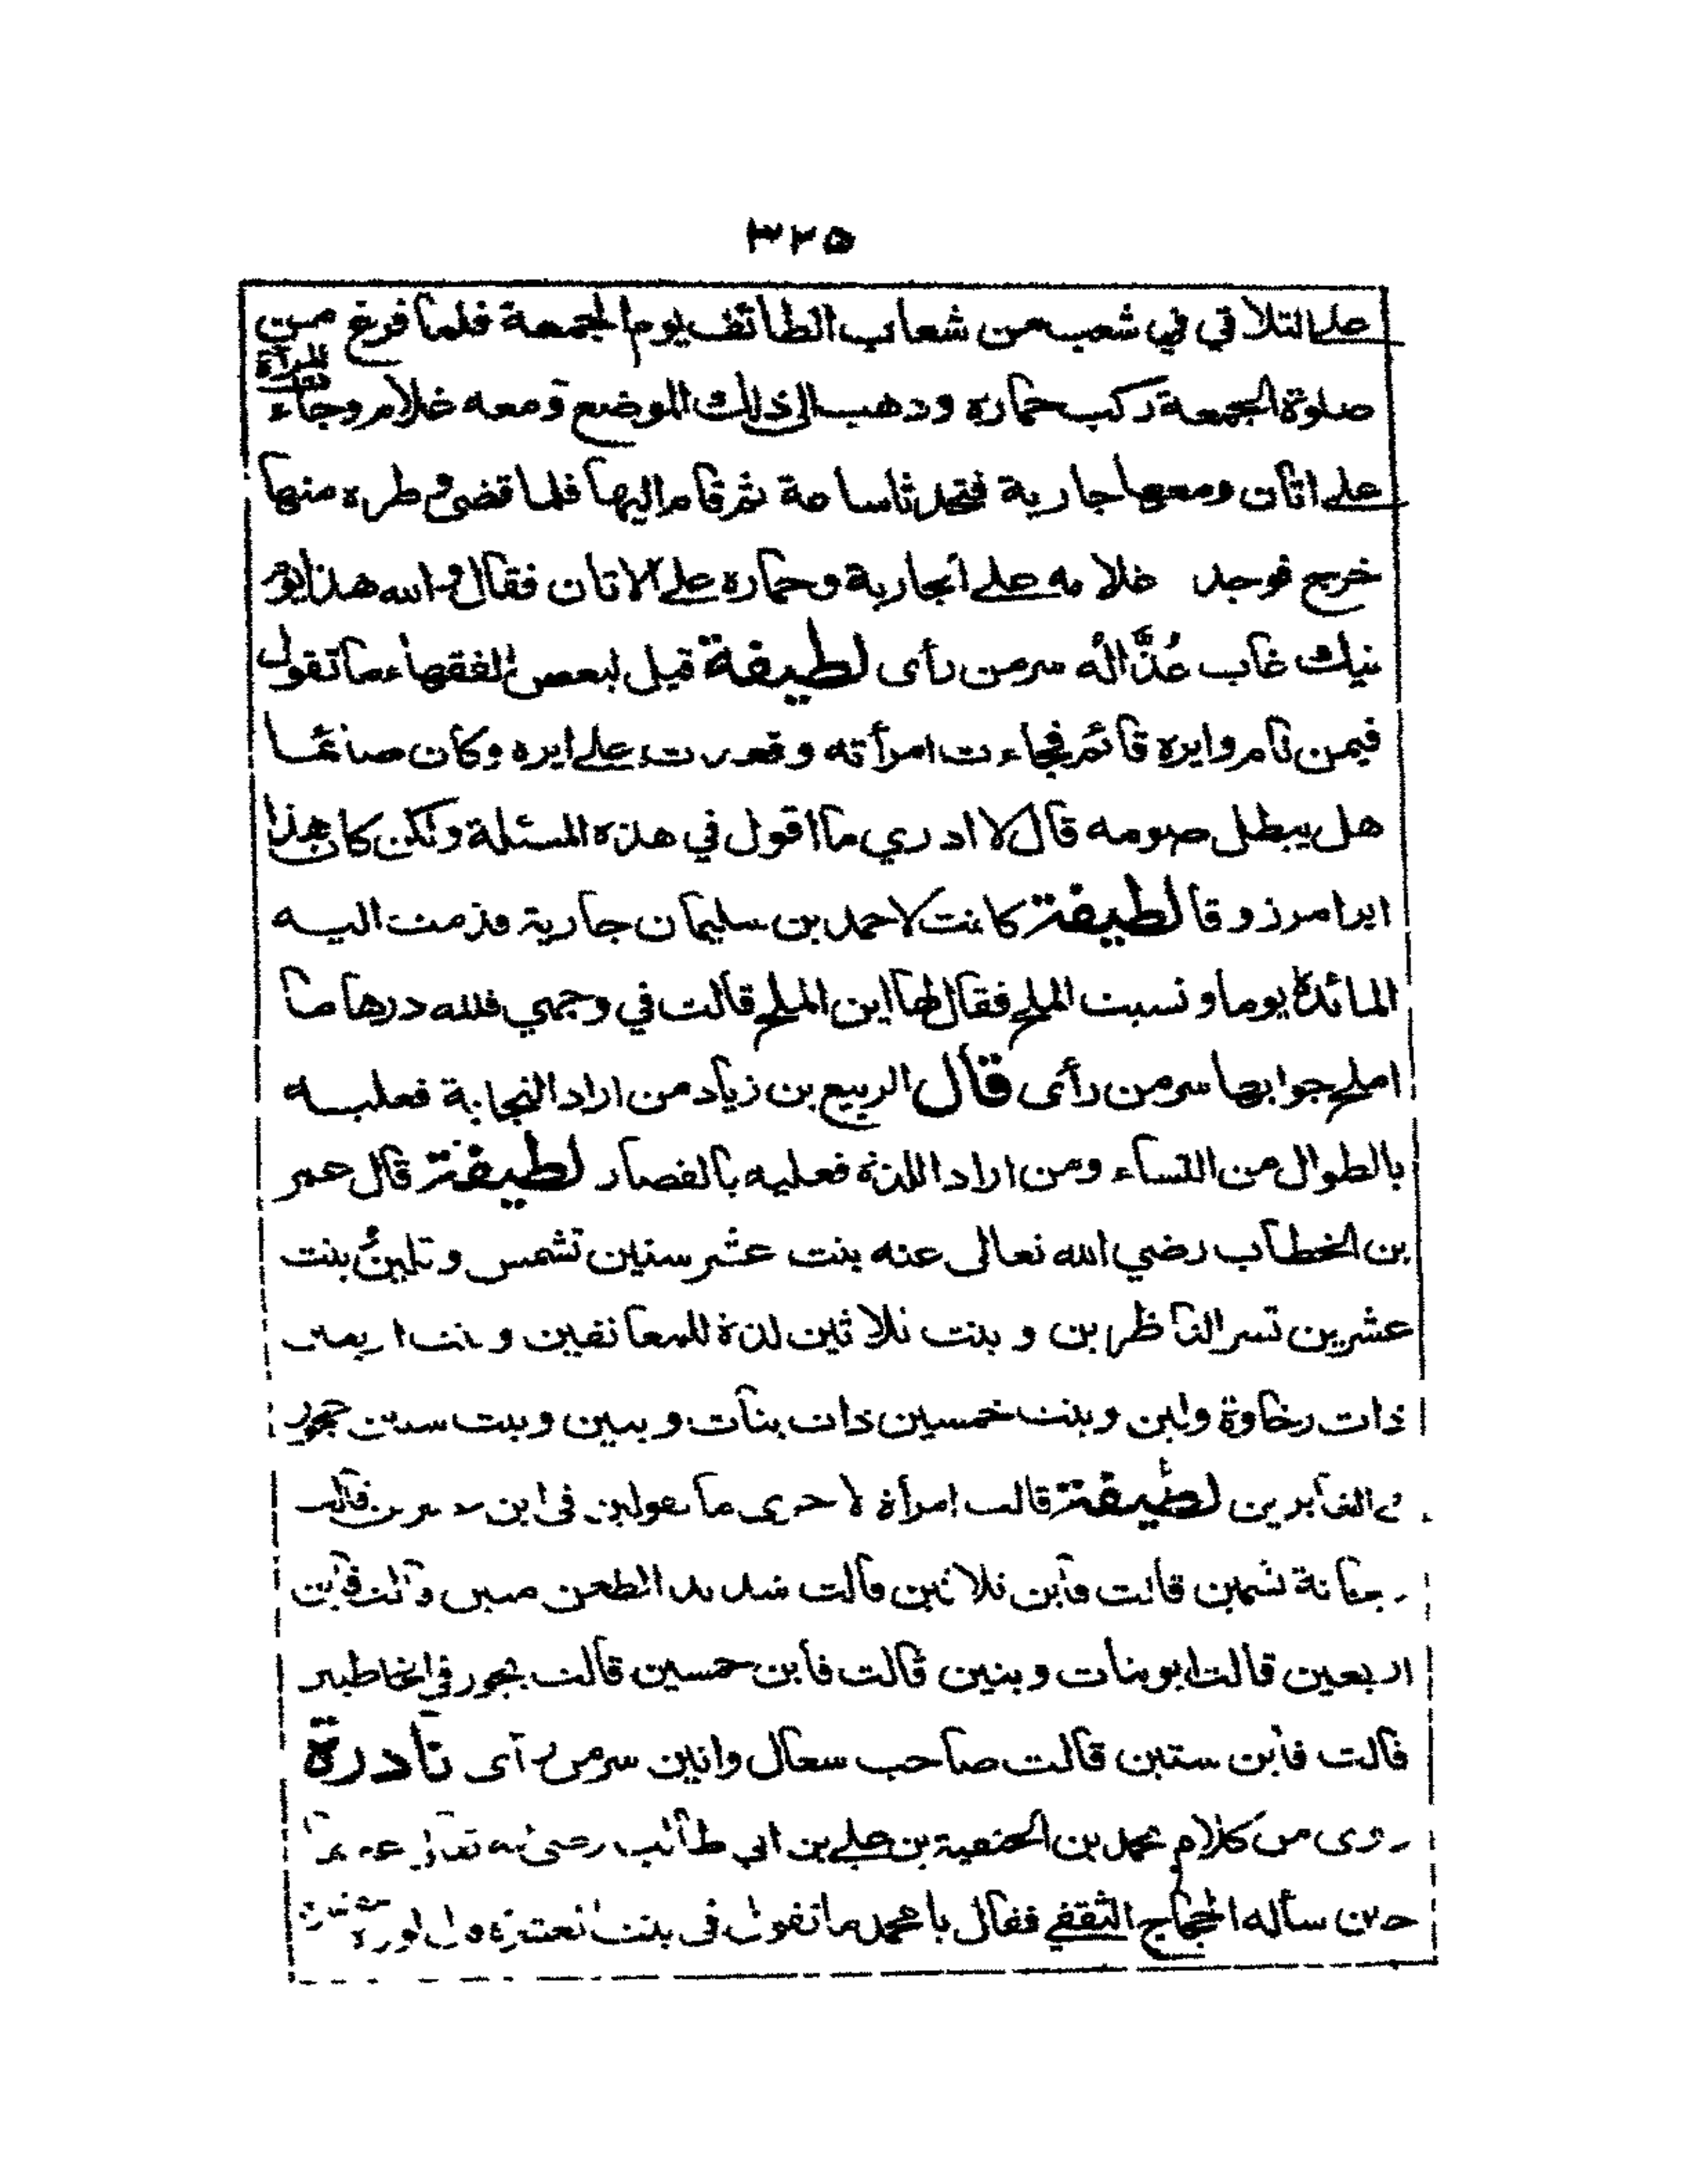 ٣٢٥
على التلاقي في شعب من شعاب الطائف يوم الجمعة فلما فرغ من
صلوة الجمعة ركب حماره وذهب الى ذلك الموضع ومعه غلام وجاءت المرأة
على اتان ومعها جارية فتحدثا ساعة ثم قام اليها فلما قضى وطره منها
خرج فوجد غلامه على الجارية وحماره على الاتان فقال والله هذا يوم
نيك غاب عُذّالُه سر من رأى لطيفة قيل لبعض الفقهاء ما تقول
فيمن نام وايره قائم فجاءت امرأته وقعدت على ايره وكان صائما
هل يبطل صومه قال لا ادري ما اقول في هذه المسئلة ولكن كان هذا
ايرا مرزوقا لطيفة كانت لاحمد بن سليمان جارية فذمت اليه
المائدة يوما ونسيت الملح فقال لها اين الملح قالت في وجهي فلله درها ما
املح جوابها سر من رأى قال الربيع بن زياد من اراد النجابة فعليه
بالطوال من النساء ومن اراد اللذة فعليه بالقصار لطيفة قال عمر
بن الخطاب رضي الله تعالى عنه بنت عشر سنين تشمس وتلين بنت
عشرين تسر الناظرين و بنت ثلاثين لذة للمعانقين و بنت اربعين
ذات رخاوة ولين و بنت خمسين ذات بنات و بنين و بنت ستين عجوز
في الغابرين لطيفة قالت امرأة لاخرى ما تقولين فى ابن عشرين قالت
ريحانة تشمين قالت فابن ثلاثين قالت شديد الطعن متين قالت فابن
اربعين قالت ابو بنات و بنين قالت فابن خمسين قالت يجوز في الخاطبين
قالت فابن ستين قالت صاحب سعال وانين سر من رأى نادرة
روى من كلام محمد بن الحنفية بن علي بن ابي طالب رضى الله تعالى عنهما
حين سأله الحجاج الثقفي فقال يا محمد ما تقول فى بنت العشرة قال لوزة